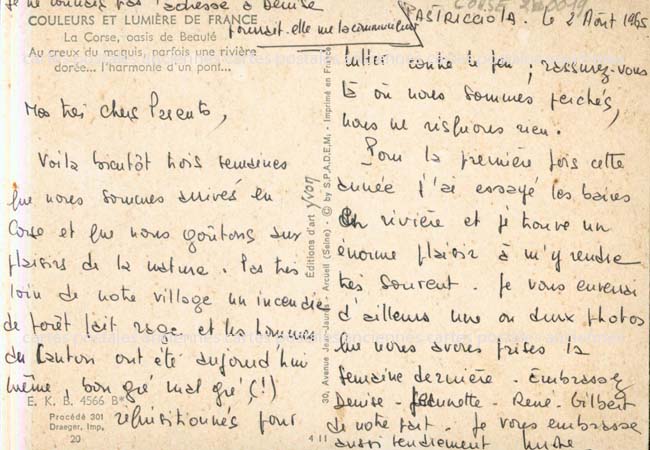 je ne connais pas l'adresse à Denise
pourrait-elle me la communiquer
COULEURS ET LUMIÈRE DE FRANCE
La Corse, oasis de Beauté
Au creux du maquis, parfois une rivière
dorée... l'harmonie d'un pont...
PASTRICCIOLA. le 2 Août 1965
Mes très chers Parents,
Voilà bientôt trois semaines
que nous sommes arrivés en
Corse et que nous goûtons aux
plaisirs de la nature. Pas très
loin de notre village un incendie
de forêt fait rage et les hommes
du Canton ont été aujourd'hui
même, bon gré mal gré (!)
réquisitionnés pour
lutter contre le feu ; rassurez-vous
là où nous sommes perchés,
nous ne risquons rien.
Pour la première fois cette
année j'ai essayé les bains
en rivière et je trouve un
énorme plaisir à m'y rendre
très souvent. Je vous enverrai
d'ailleurs une ou deux photos
que nous avons prises la
semaine dernière. Embrassez
Denise - Jeannette - René - Gilbert
de notre part. Je vous embrasse
aussi tendrement
E. K. B. 4566 B*
Procédé 301
Draeger, Imp.
20
4 11
30, Avenue Jean-Jaurès - Arcueil (Seine) - © by S.P.A.D.E.M. - Imprimé en France
Éditions d'art yvon